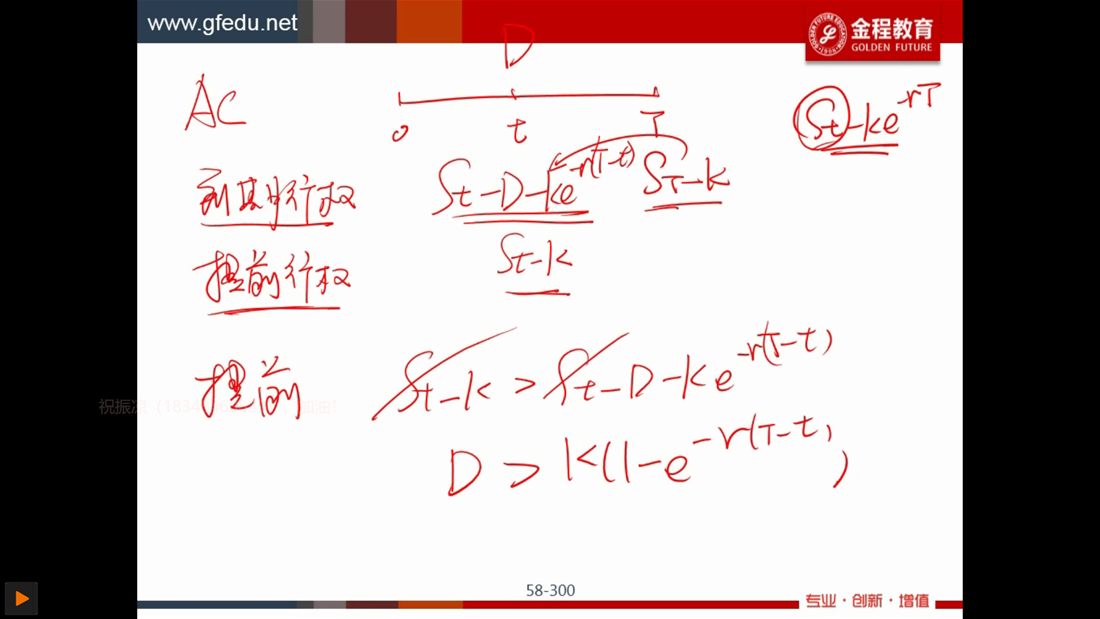 www.gfedu.net
金程教育
GOLDEN FUTURE
D
AC
0 t T
St-ke^-rT
到期行权 St-D-ke^-r(T-t) ST-K
提前行权 St-K
提前 St-K > St-D-Ke^-r(T-t)
D > K(1-e^-r(T-t))
58-300
专业·创新·增值